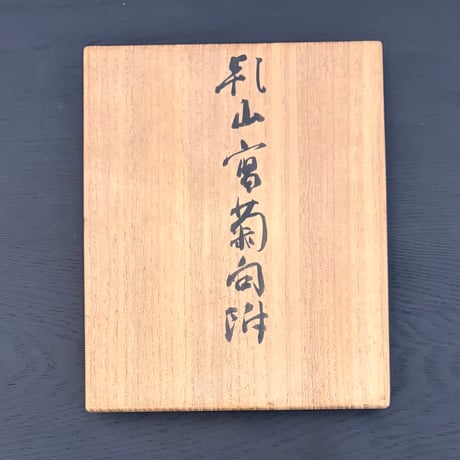 乾山寫菊向附